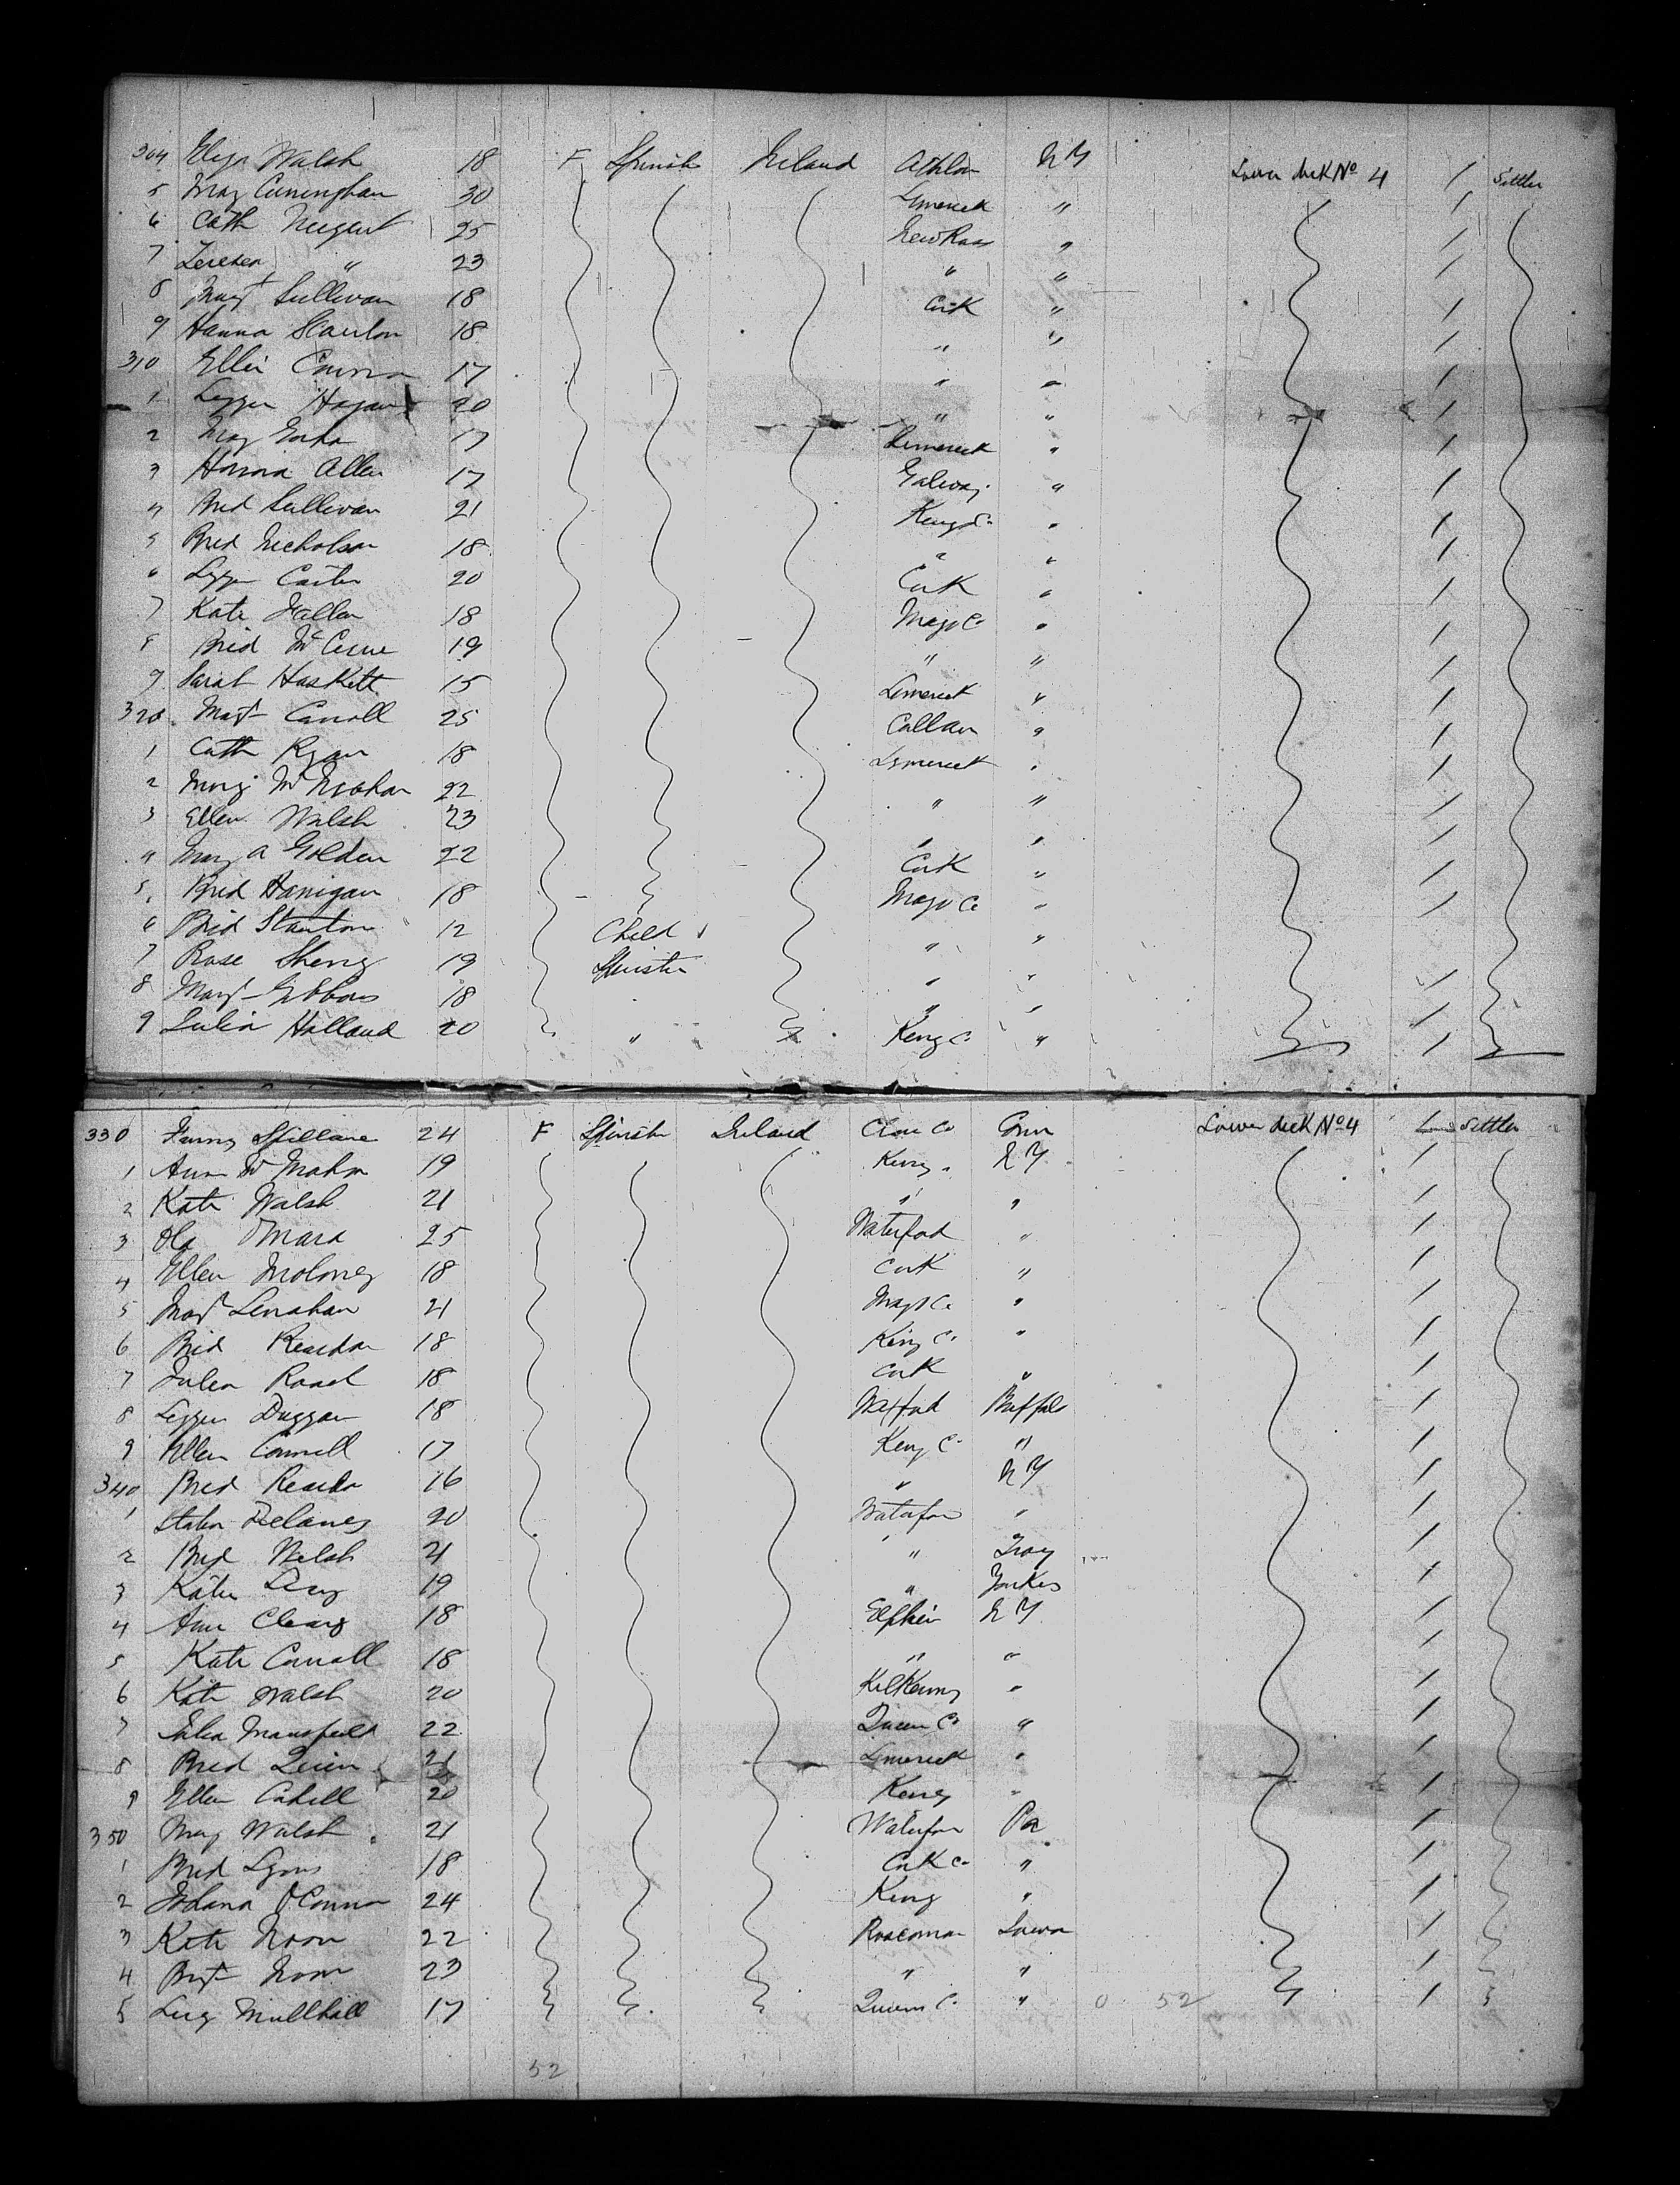 304 Eliza Walsh 18 F Spinster Ireland Athlon N Y Lower deck No 4 / Settler
5 Mary Cuningham 30 Limerick " /
6 Cath Nugent 25 New Ross " /
7 Teresa " 23 " " /
8 Margt Sullivan 18 Cork " /
9 Hanna Scanlon 18 " " /
310 Ellen Connor 17 " " /
1 Lizzie Hogan 20 " " /
2 Mary 17 Limerick " /
3 Honora Allen 17 Galway " /
4 Brid Sullivan 21 Kings Co " /
5 Brid Nicholson 18 " " /
6 Lizzie Carter 20 Cork " /
7 Kate Fallen 18 Mayo Co " /
8 Brid 19 " " /
9 Sarah Haskett 15 Limerick " /
320 Margt Carroll 25 Callan " /
1 Cath Ryan 18 Limerick " /
2 Mary McMahon 22 " " /
3 Ellen Walsh 23 " " /
4 Mary A Golden 22 Cork " /
5 Brid Hanigan 18 Mayo Co " /
6 Brid Stanton 12 Child " "
7 Rose 19 Spinster " " /
8 Margt Gibbons 18 " " /
9 Julia Holland 20 " Kerry Co " /
330 Fanny Spillane 24 F Spinster Ireland Clare Co Conn Lower deck No 4 / Settler
1 Ann McMahon 19 Kerry N Y /
2 Kate Walsh 21 " " /
3 O'Mara 25 Waterford " /
4 Ellen Moloney 18 Cork " /
5 Margt Lenahan 21 Mayo Co " /
6 Brid Reardon 18 Kerry Co " /
7 Julia Roach 18 Cork " /
8 Lizzie Duggan 18 Watford Buffalo /
9 Ellen Connell 17 Kerry Co " /
340 Brid Reardon 16 " N Y /
1 Delaney 20 Waterford " /
2 Brid Walsh 21 " Troy /
3 Katie 19 " Yonkers /
4 Ann Cleary 18 Elphin N Y /
5 Kate Carroll 18 " " /
6 Kate Walsh 20 Kilkenny " /
7 Julia Mansfield 22 Queen Co " /
8 Brid Quinn 21 Limerick " /
9 Ellen Cahill 20 Kerry " /
350 Mary Walsh 21 Waterford Pa /
1 Brid Lyons 18 Cork Co " /
2 Johana O'Connor 24 Kerry " /
3 Kate Noon 22 Roscomon Iowa /
4 Brgt Noon 23 " " /
5 Lucy Mullhall 17 Queens Co " 0 52 /
52